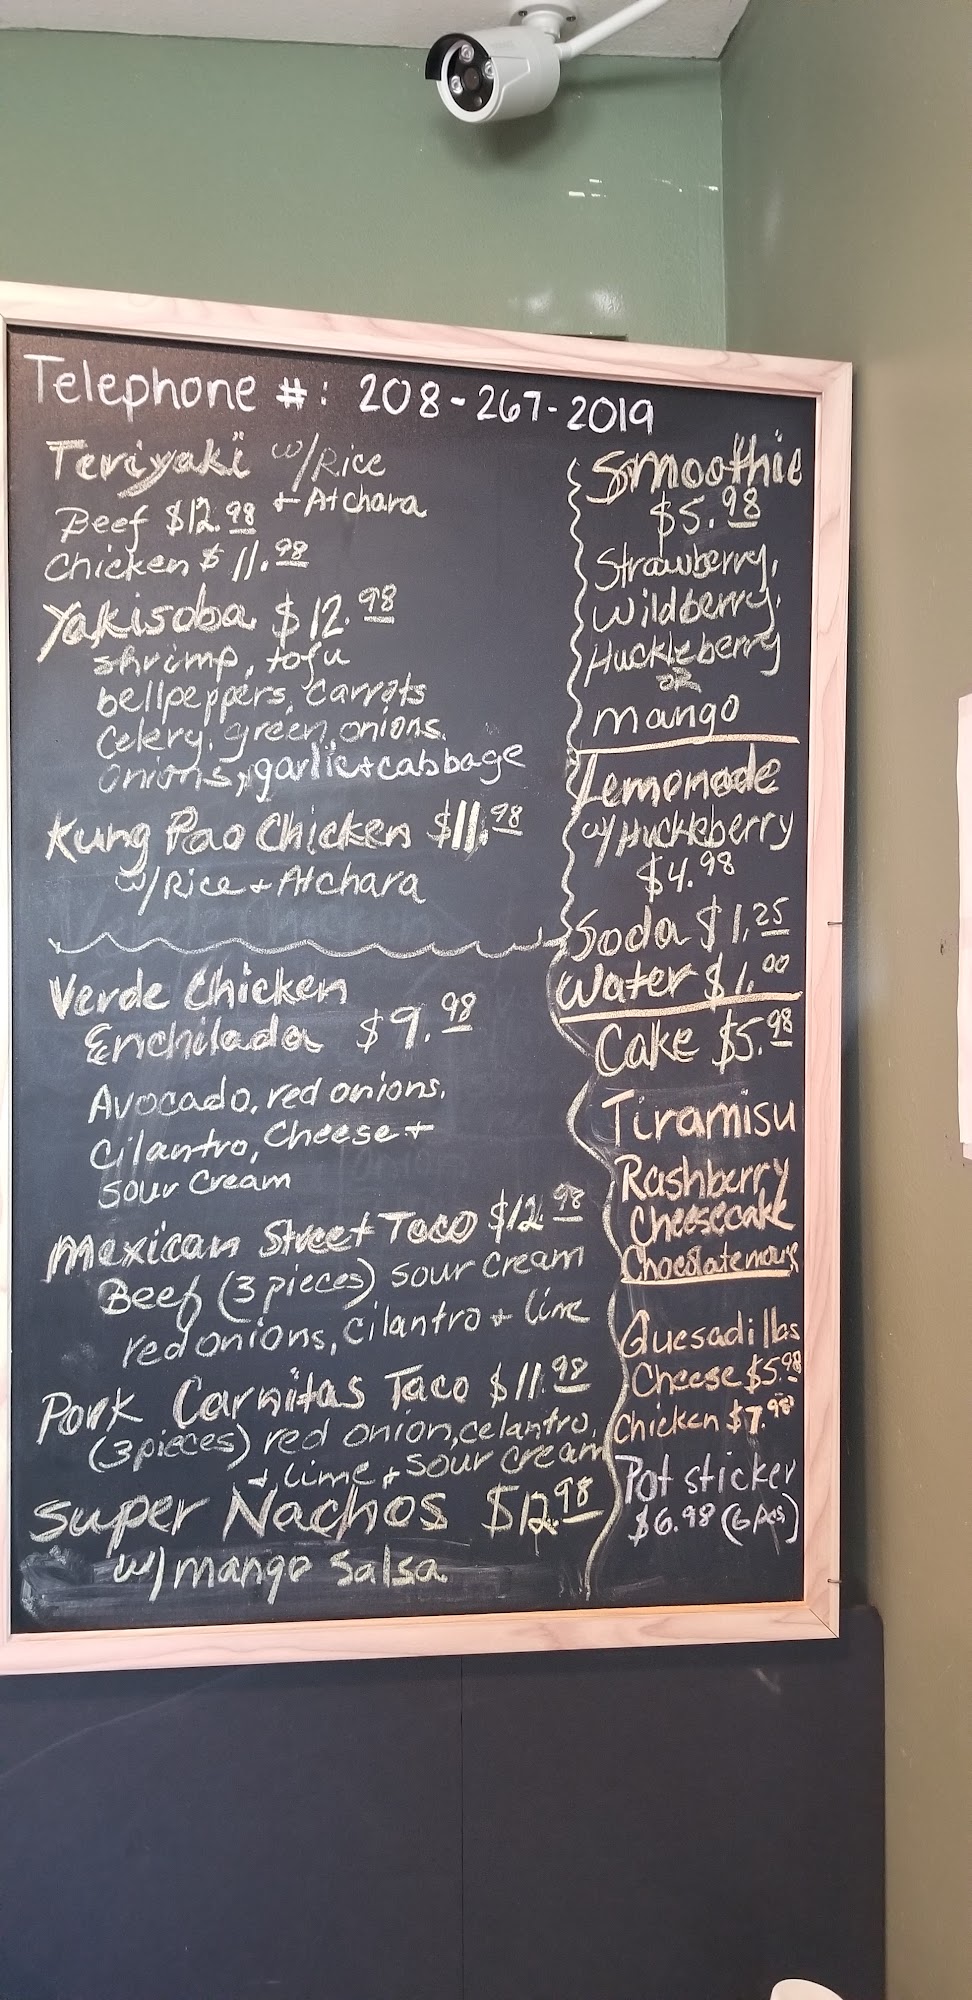 Telephone #: 208-267-2019
Teriyaki w/Rice
+ Atchara
Beef $12.98
Chicken $11.98
Yakisoba $12.98
shrimp, tofu
bellpeppers, carrots
Celery, green onions.
onions, garlic + cabbage
Kung Pao Chicken $11.98
w/Rice + Atchara
Verde Chicken
Enchilada $9.98
Avocado, red onions,
Cilantro, Cheese +
sour Cream
Mexican Street Taco $12.98
Beef (3 pieces) sour Cream
red onions, cilantro + lime
Pork Carnitas Taco $11.98
(3 pieces) red onion, celantro,
+ lime + sour cream
Super Nachos $12.98
w/ mango salsa
Smoothie
$5.98
Strawberry,
Wildberry,
Huckleberry
or
mango
Lemonade
w/Huckleberry
$4.98
Soda $1.25
Water $1.00
Cake $5.98
Tiramisu
Rashberry
Cheesecake
Chocolate mous
Quesadillas
Cheese $5.98
Chicken $7.98
Pot sticker
$6.98 (6 pcs)